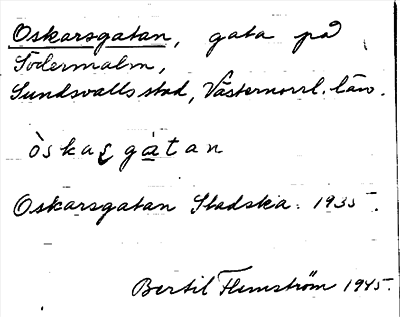 Oskarsgatan, gata på
Södermalm,
Sundsvalls stad, Västernorrl. län.
òskaʂgàtan
Oskarsgatan Stadska. 1935.
Bertil Flemström 1945.